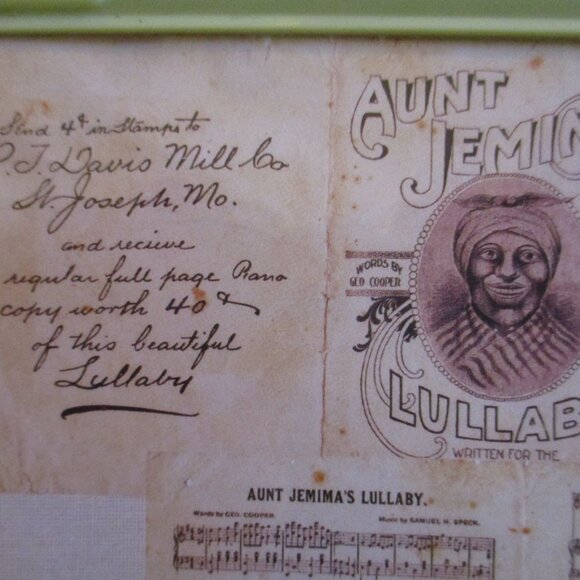 Send 4¢ in Stamps to
T. Davis Mill Co
St. Joseph, Mo.
and recieve
regular full page Piano
copy worth 40¢
of this beautiful
Lullaby
AUNT
JEMIM
WORDS BY
GEO COOPER
LULLAB
WRITTEN FOR THE
AUNT JEMIMA'S LULLABY.
Words by GEO. COOPER.
Music by SAMUEL H. SPECK.